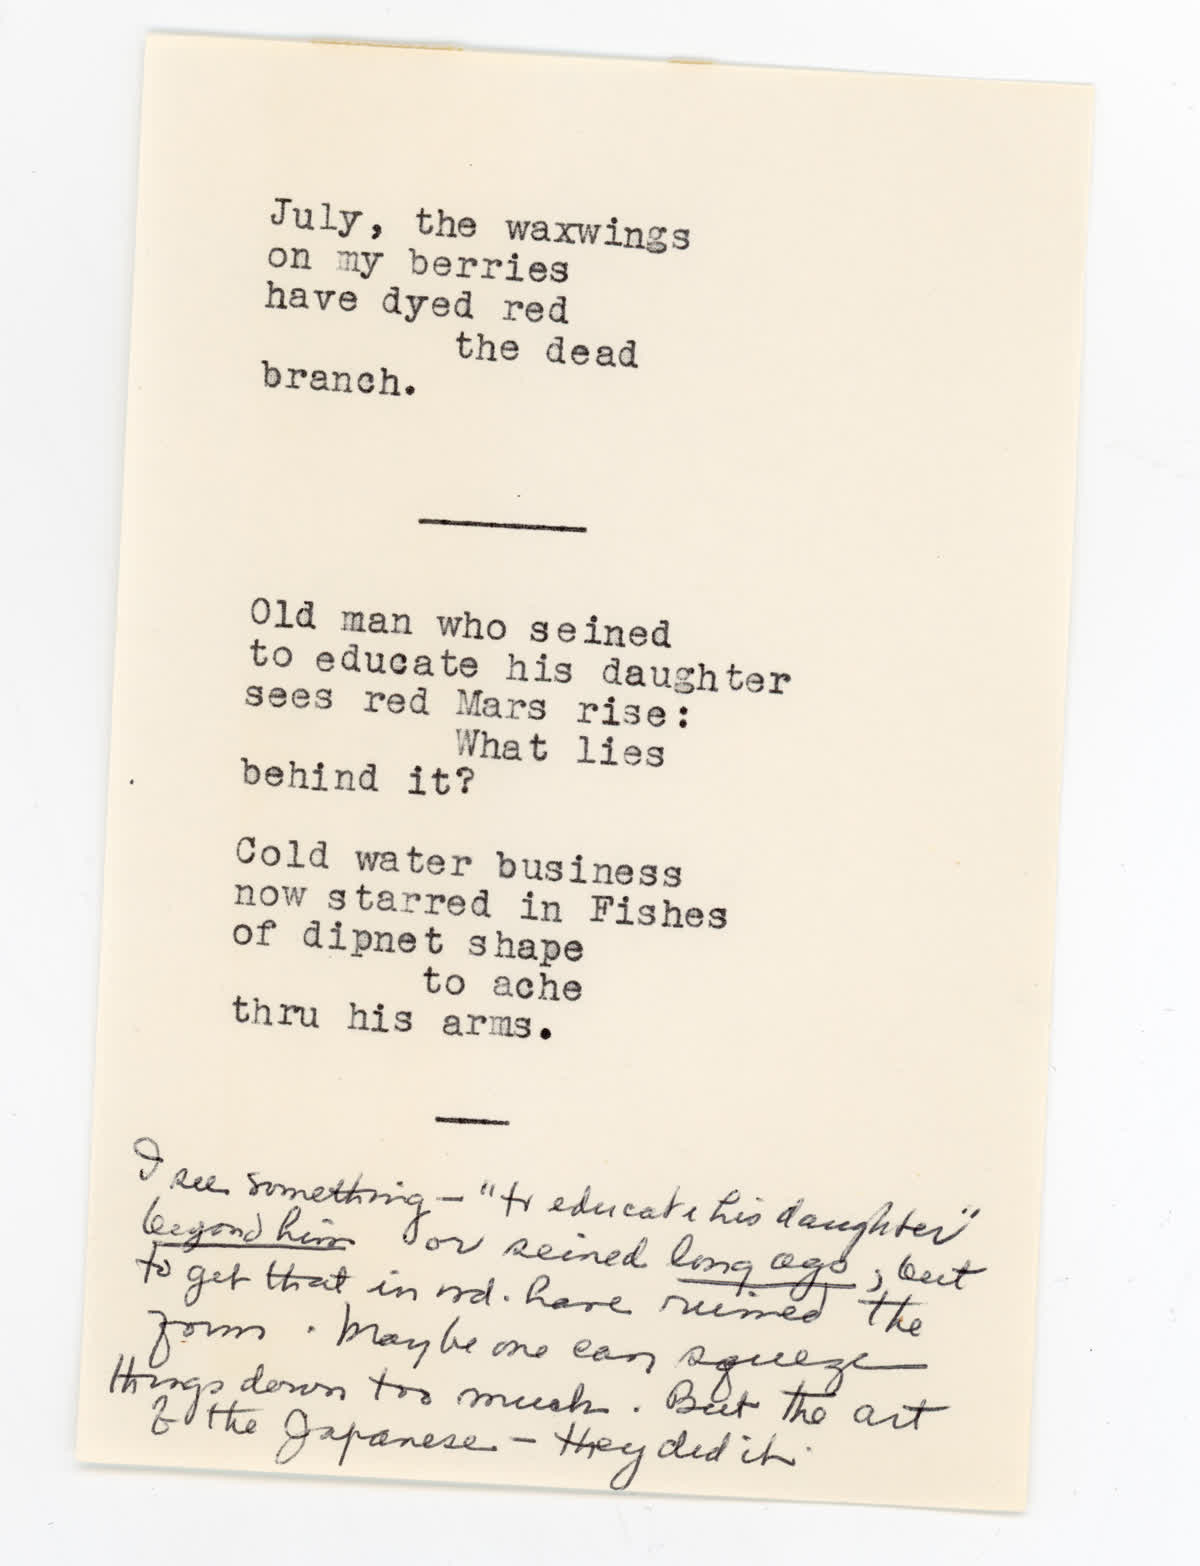 July, the waxwings
on my berries
have dyed red
the dead
branch.
Old man who seined
to educate his daughter
sees red Mars rise:
What lies
behind it?
Cold water business
now starred in Fishes
of dipnet shape
to ache
thru his arms.
I see something — "to educate his daughter"
beyond him or seined long ago; but
to get that in wd. have ruined the
form. Maybe one can squeeze
things down too much. But the art
of the Japanese — they did it.